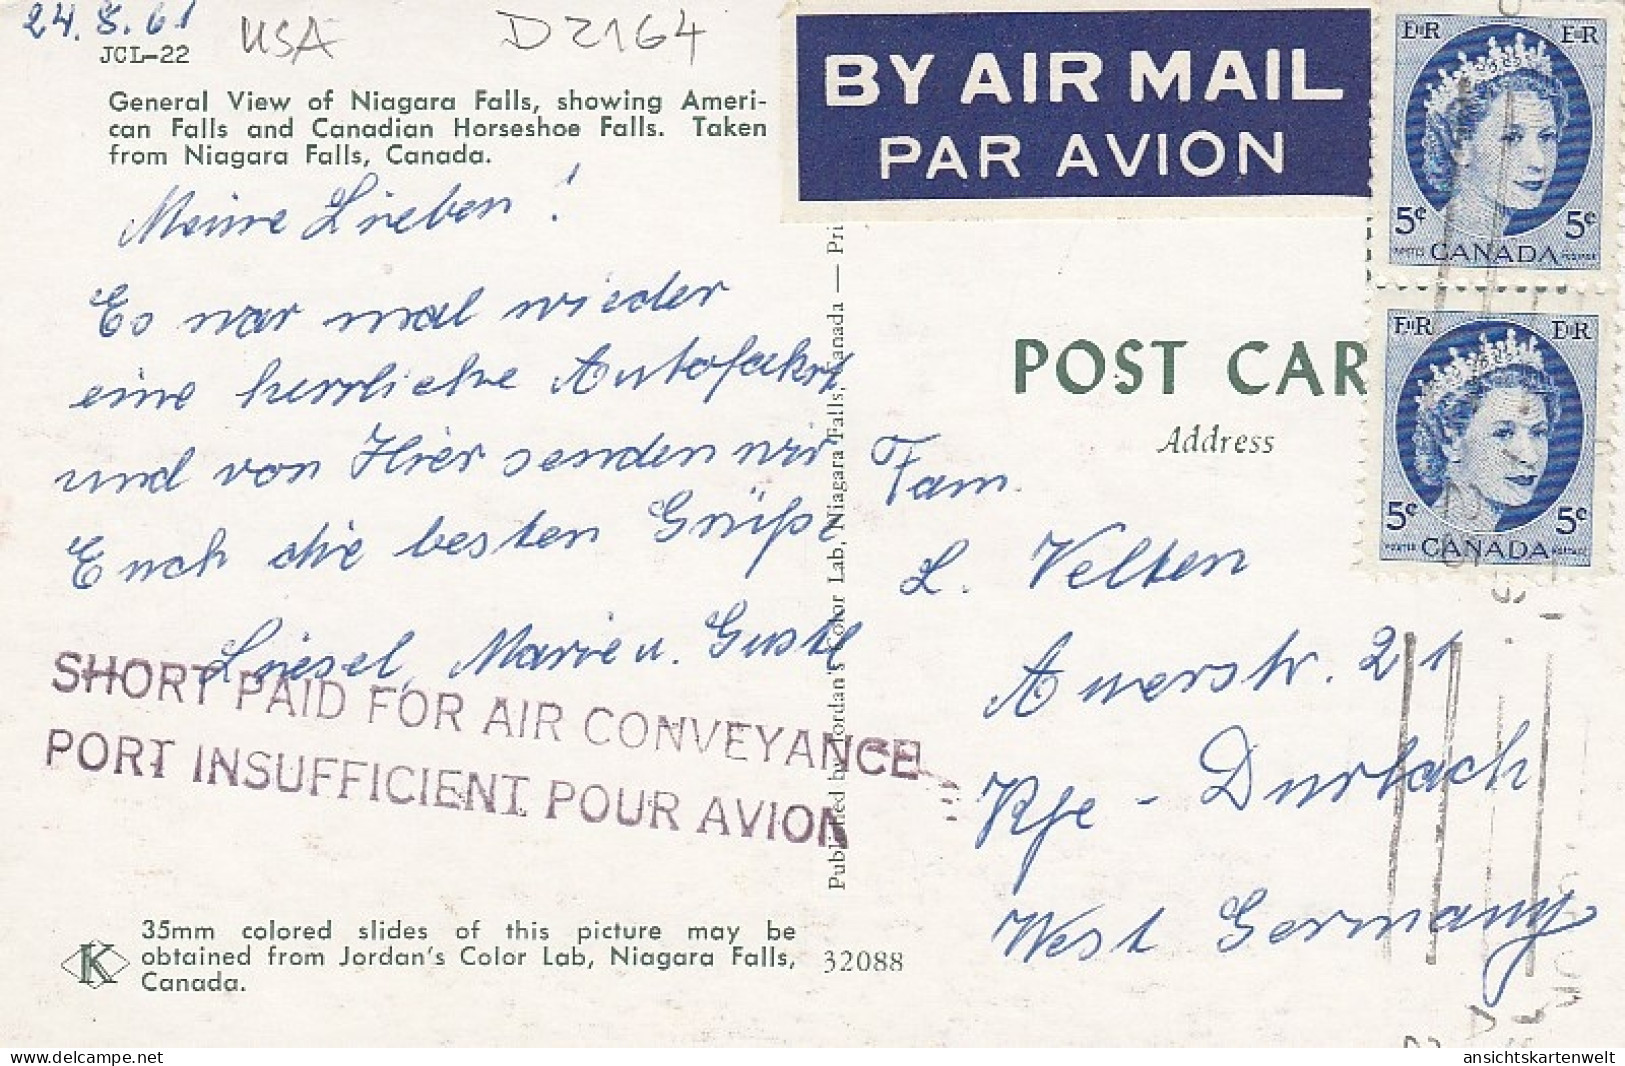 24. 8. 61
USA
D2164
JCL-22
General View of Niagara Falls, showing Ameri-
can Falls and Canadian Horseshoe Falls. Taken
from Niagara Falls, Canada.
Meine Lieben!
Es war mal wieder
eine herrliche Autofahrt
und von Hier senden wir
Euch die besten Grüße
Liesel, Marie u. Gustl
SHORT PAID FOR AIR CONVEYANCE
PORT INSUFFICIENT POUR AVION
35mm colored slides of this picture may be
obtained from Jordan's Color Lab, Niagara Falls,
Canada.
K
32088
Published by Jordan's Color Lab, Niagara Falls, Canada — Pri
BY AIR MAIL
PAR AVION
EIIR EIIR
5¢ 5¢
POSTES CANADA POSTAGE
EIIR EIIR
5¢ 5¢
POSTES CANADA POSTAGE
POST CAR
Address
Fam.
L. Velten
Auerstr. 21
Kfe - Durlach
West Germany
ansichtskartenwelt